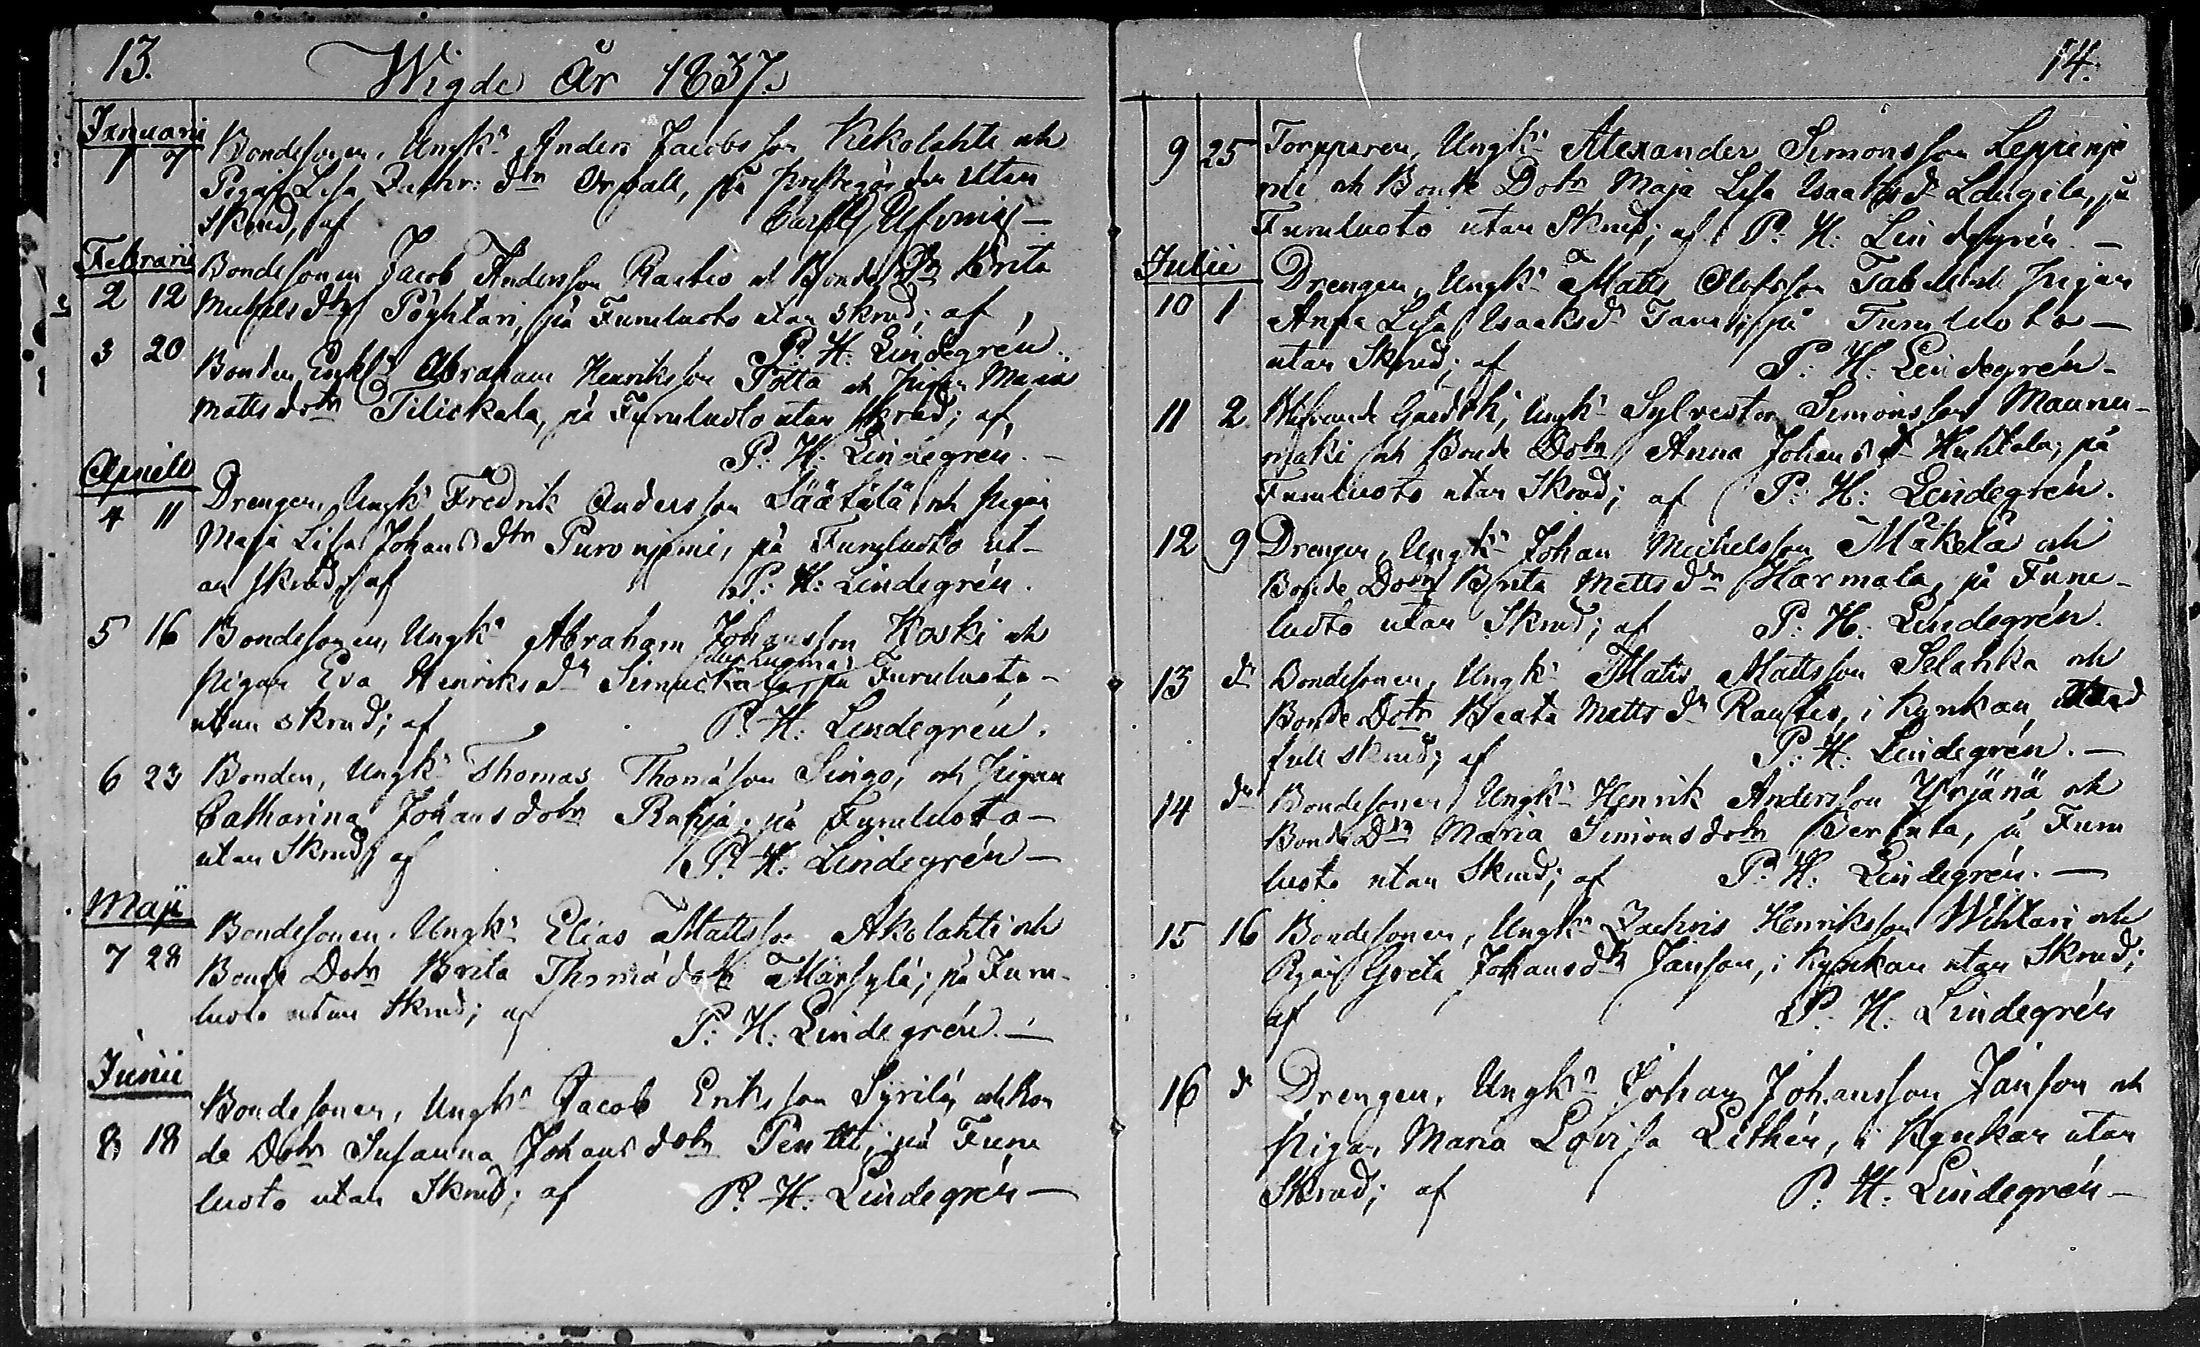 13.
Wigde År 1837.
Januarii
1 7 Bondesonen, Ungk: Anders Jacobsson Kekolahti och
Pigan Lisa Zachr: dtr Orvall, på prestegården utan
skrud, af
Februarii
Bondesonen Jacob Andersson Rautio och Bonde Dtr Brita
2 12 Michelsdtr Pöyhtari, på Furuluoto utan skrud; af
P. H. Lindegrén.
3 20 Bonden Enkl: Abraham Henriksson Potta och pigan Maria
Mattsdotr Tiliskala, på Furuluoto utan skrud; af,
P: H: Lindegrén. -
Aprill
4 11 Drengen, Ungk: Fredrik Andersson Säätälä och pigan
Maja Lisa Johansdtr Puronjemi, på Furuluoto ut-
an skrud, af P: H: Lindegrén.
5 16 Bondesonen, Ungk: Abraham Johansson Koski och
pigan Eva Henriksdr på Furuluoto -
utan skrud; af P. H: Lindegrén.
6 23 Bonden, Ungk: Thomas Thomasson Singo, och pigan
Catharina Johansdotr Rahja; på Furuluoto -
utan Skrud; af P. H: Lindegrén -
Maji
7 28 Bondesonen, Ungk: Elias Mattsson Akolahti och
Bonde Dotr Brita Thomædotr Marsylä; på Furu-
luoto utan skrud; af P: H: Lindegrén. -
Junii
Bondesonen, Ungk: Jacob Eriksson Syrilä och Bon
8 18 de Dotr Susanna Johansdotr Pentti, på Furu
luoto utan Skrud; af P. H: Lindegrén -
14.
9 25 Torpparen, Ungk: Alexander Simonsson Leppinje
mi och Bonde Dotr Maja Lisa Isaaksdr Laugila, på
Furuluoto utan Skrud; af P: H: Lindegrén. -
Julii
10 1 Drengen, Ungk: Matts Olofsson och pigan
Anna Lisa Isaaksdr på Furuluoto -
utan Skrud; af P: H: Lindegrén -
11 2 Ungk: Sylvester Simonsson Maunu-
mäki och Bonde Dotr Anna Johansdr Huhtala; på
Furuluoto utan Skrud; af P: H: Lindegrén.
12 9 Drengen, Ungk: Johan Michelsson Mäkelä och
Bonde Dotr Brita Mattsdr Harmala, på Furu-
luoto utan Skrud; af P: H: Lindegrén.
13 dr Bondesonen, Ungk: Matts Mattsson Selanka och
Bonde Dotr Beata Mattsdr Rautio, i Kyrkan med
full skrud; af P: H: Lindegrén. -
14 dr Bondesonen, Ungk: Henrik Andersson Yrjänä och
Bonde Dtr Maria Simonsdotr Perttula, på Furu
luoto utan Skrud; af P: H: Lindegrén. -
15 16 Bondesonen, Ungk: Zachris Henriksson Wihtari och
Pigan Greta Johansdtr Janson, i Kyrkan utan Skrud;
af P. H: Lindegrén
16 d Drengen, Ungk: Johan Johansson Janson och
pigan Maria Lovisa Lithén, i Kyrkan utan
Skrud; af P. H: Lindegrén -